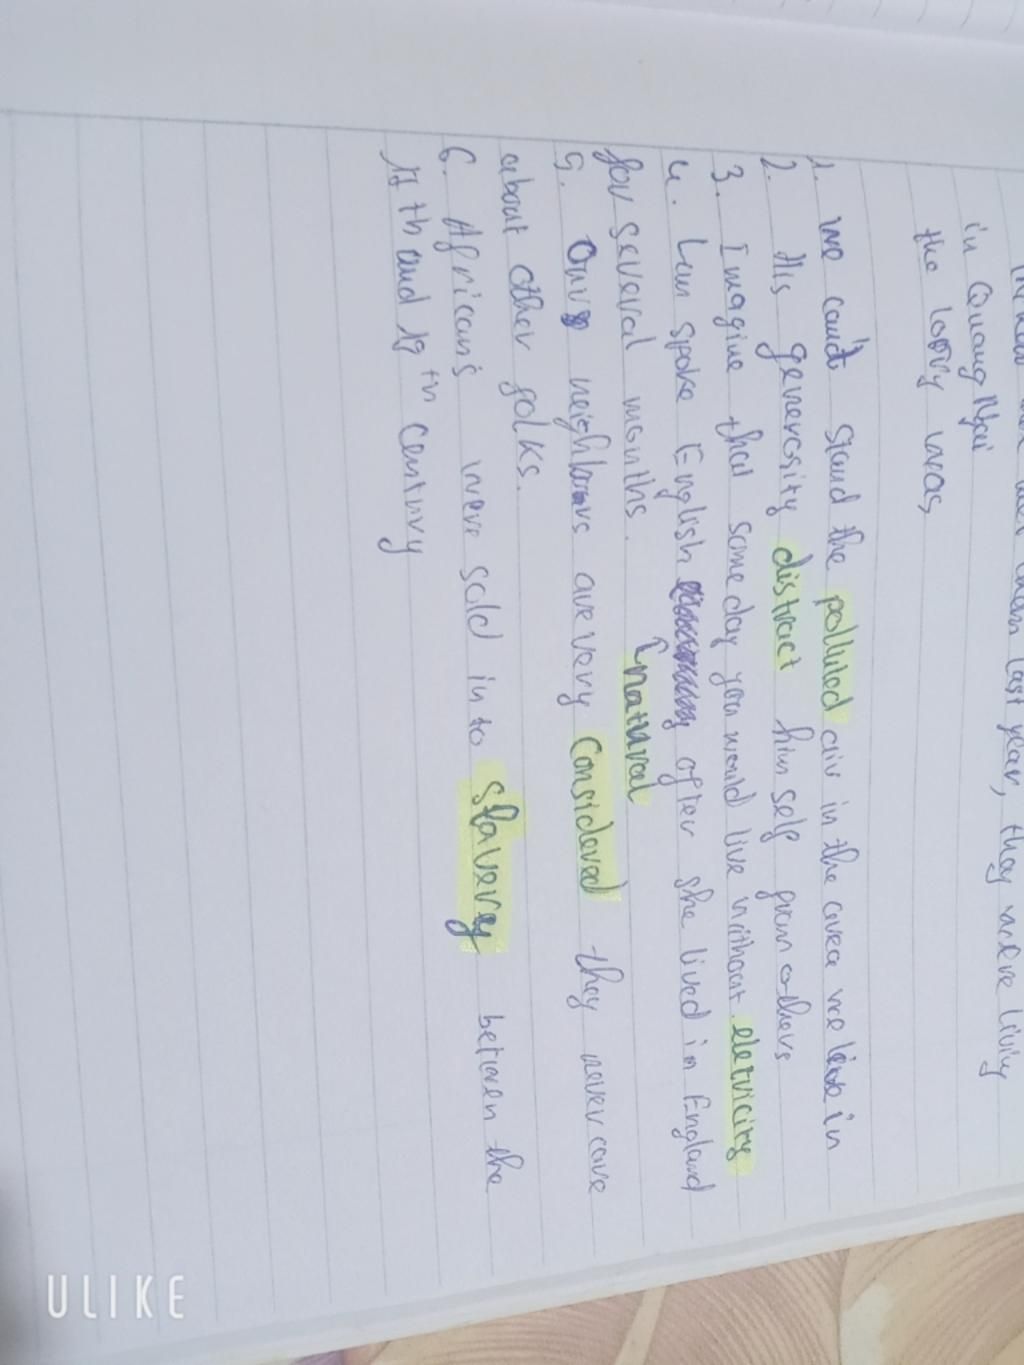 last year, they were living
in Quang Ngai
the lorry was
1. we can't stand the polluted air in the area we live in
2. His generosity distract him self from others
3. Imagine that some day you would live without eletricity
4. Lan spoke English after she lived in England
for several months. natural
5. Our neighbours are very considered they never care
about other folks.
6. African's were sold in to slavery between the
17 th and 19th century
ULIKE